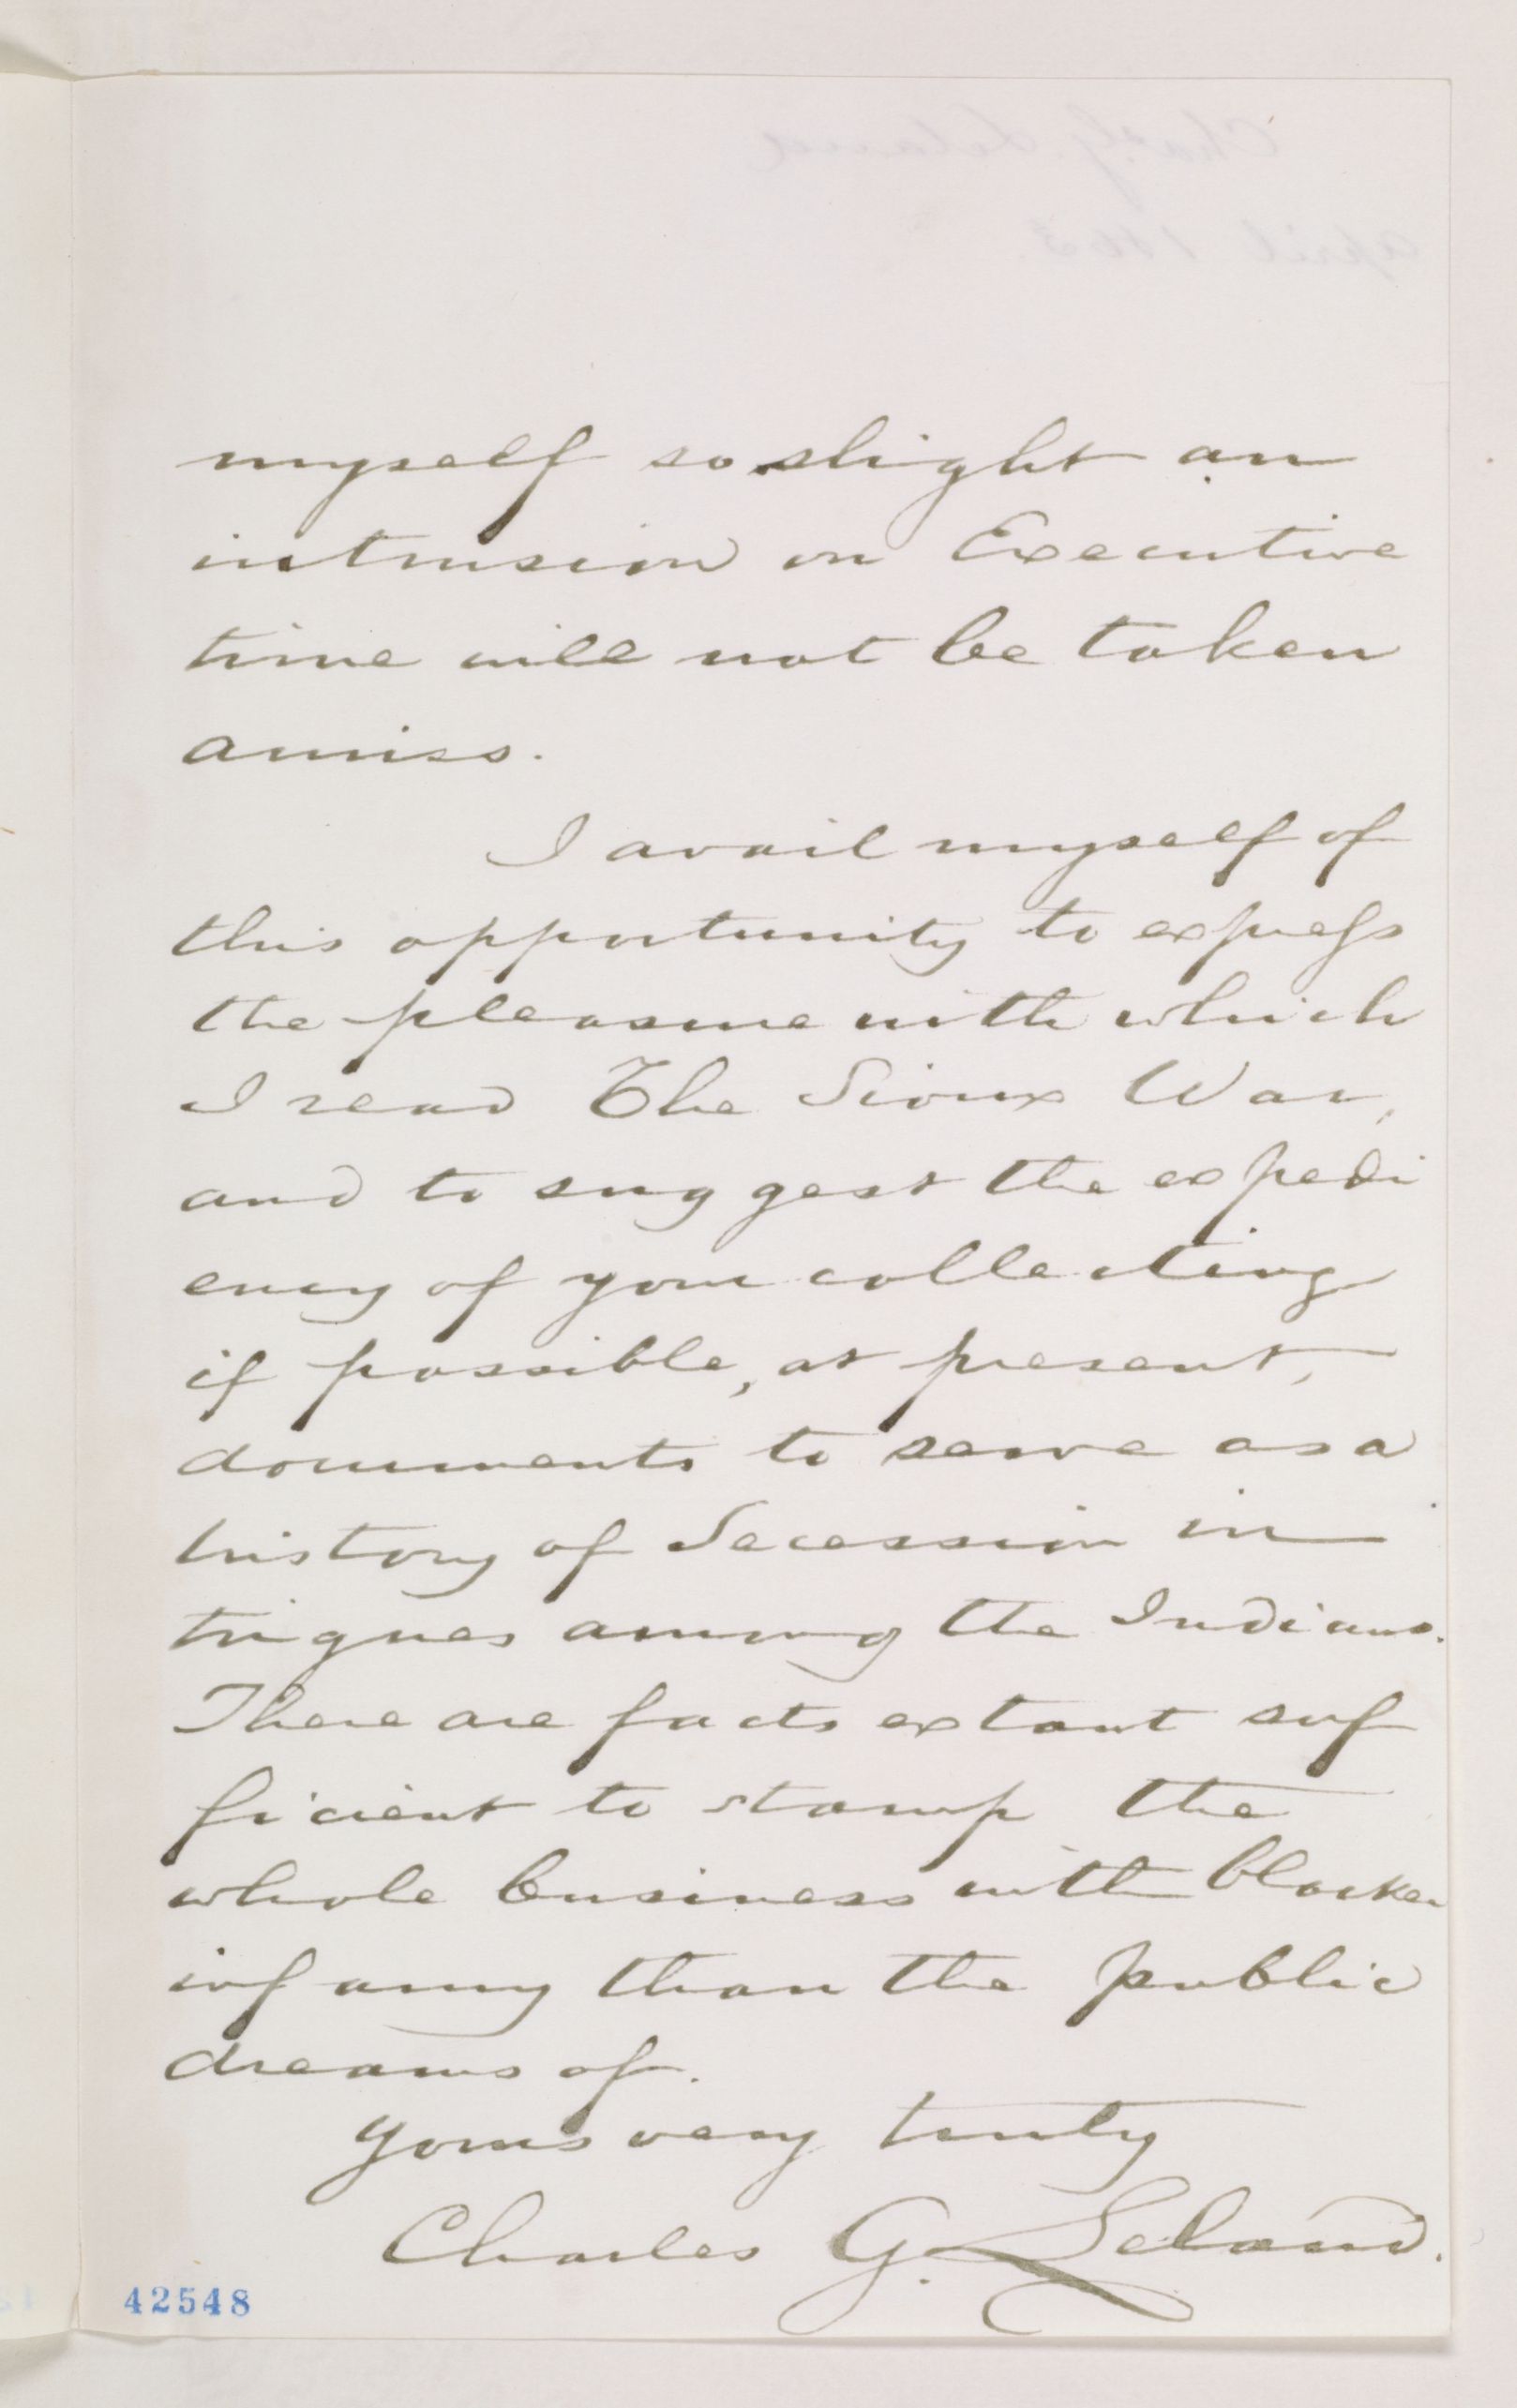 myself so slight an
intrusion on Executive
time will not be taken
amiss.
I avail myself of
this opportunity to express
the pleasure with which
I read The Sioux War,
and to suggest the expedi
ency of your collecting
if possible, at present,
documents to serve as a
history of Secession in
trigues among the Indians.
There are facts extant suf
ficient to stamp the
whole business with blacker
infamy than the public
dreams of.
Yours very truly
Charles G. Leland.
42548